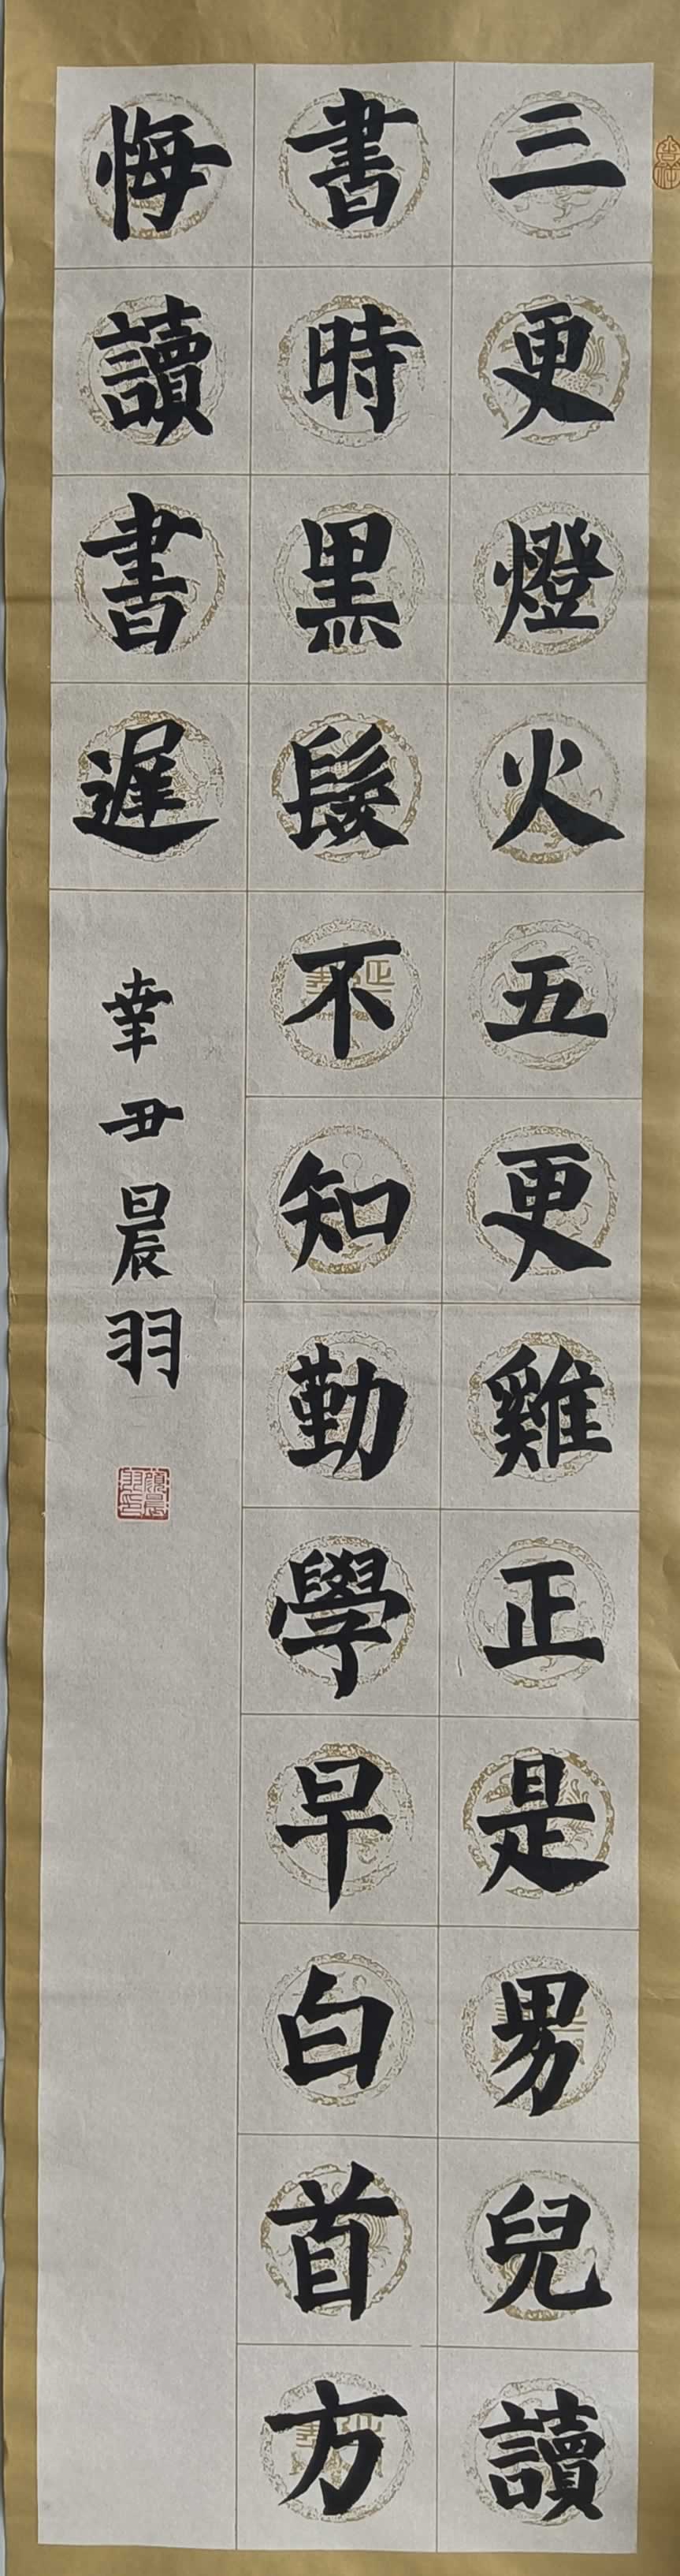 三更燈火五更雞正是男兒讀
書時黑髮不知勤學早白首方
悔讀書遲
幸丑晨羽